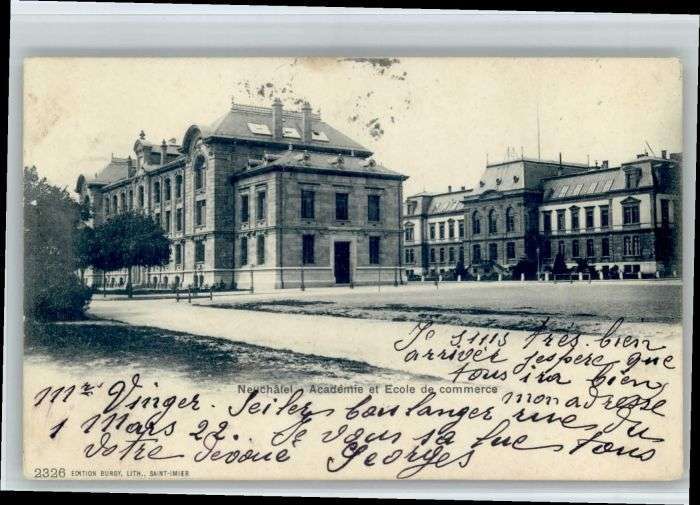 Je suis très bien
arriver jespère que
tous ira bien,
Neuchâtel - Académie et Ecole de commerce
mon adresse
Mr Vinger. Seiler boulanger rue du
1 mars 22. Je vous sa lue tous
Votre dévoué Georges
2326 EDITION BURGY, LITH., SAINT-IMIER